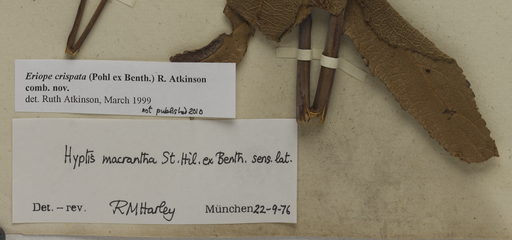 Eriope crispata (Pohl ex Benth.) R. Atkinson
comb. nov.
det. Ruth Atkinson, March 1999
not published 2010
Hyptis macrantha St. Hil. ex Benth. sens. lat.
Det. – rev. RMHarley München 22-9-76